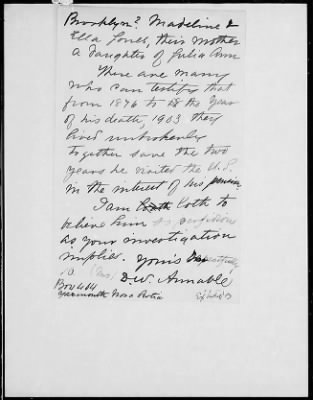 Brooklyn? Madeline &
Ella Lovell, their mother
a daughter of Julia Ann
There are many
who can testify that
from 1896 to the year
of his death, 1903 they
lived unbrokenly
together save the two
years he visited the U.S.
in the interest of his pension.
I am loath to
believe him so perfidious
as your investigation
implies. Yours Respectfully
(Mrs) D.W. Annable
Box 464
Yarmouth Nova Scotia